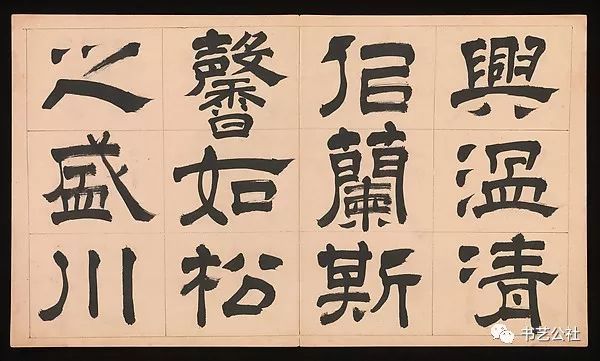 興溫清
佀蘭斯
馨如松
之盛川
书艺公社